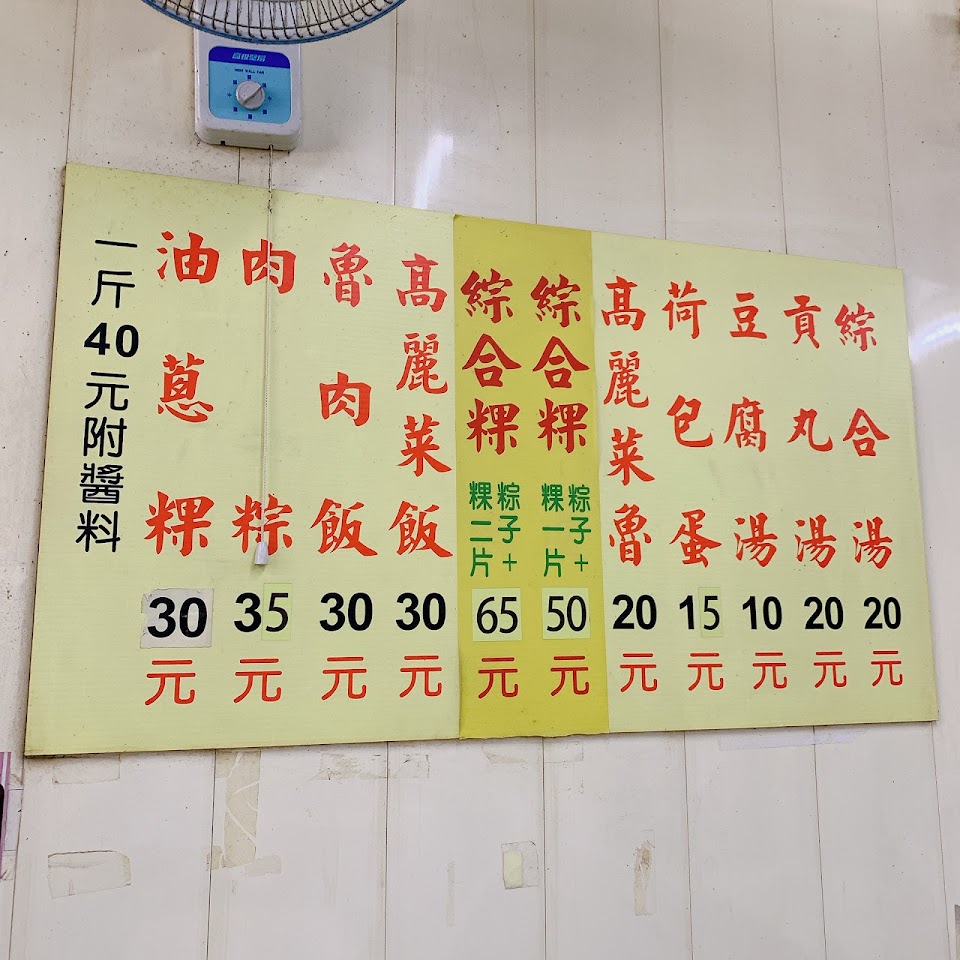 高級壁扇
HIGH WALL FAN
綜合湯 20元
貢丸湯 20元
豆腐湯 10元
荷包蛋 15元
高麗菜魯 20元
綜合粿 粽子+粿一片 50元
綜合粿 粽子+粿二片 65元
高麗菜飯 30元
魯肉飯 30元
肉粽 35元
油蔥粿 30元
一斤40元附醬料